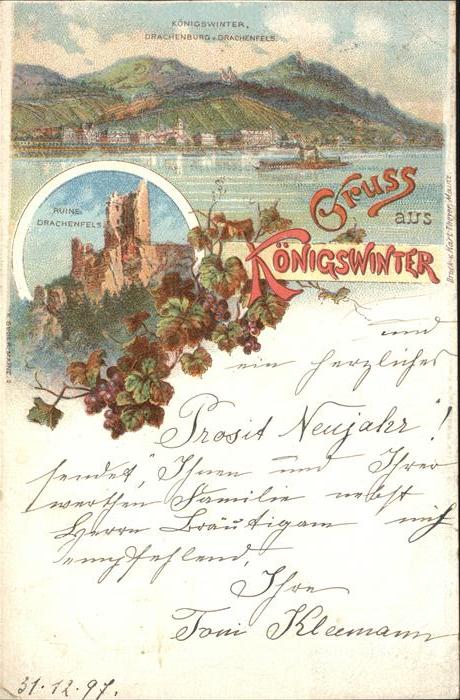 KÖNIGSWINTER,
DRACHENBURG u. DRACHENFELS.
RUINE
DRACHENFELS
Gruss
aus
KÖNIGSWINTER
und
ein herzliches
"Prosit Neujahr"!
sendet Ihnen und Ihrer
werthen Familie nebst
Herrn Bräutigam mich
empfehlend,
Ihre
Toni Kleemann
31.12.97.